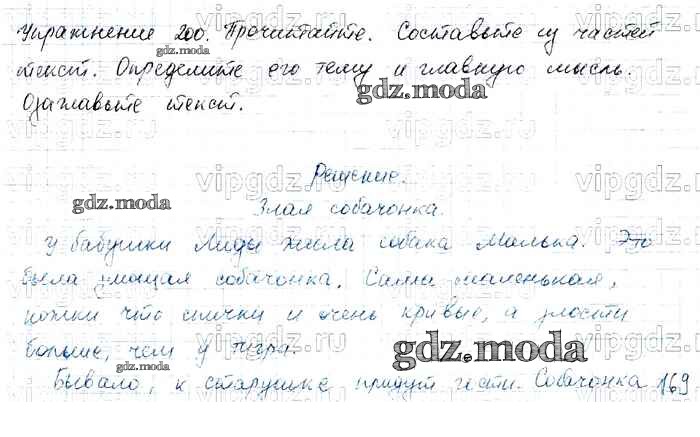 Упражнение 200. Прочитайте. Составьте из частей
текст. Определите его тему и главную мысль.
Озаглавьте текст.
Решение.
Злая собачонка.
У бабушки Лиды жила собака Милька. Это
была тощая собачонка. Сама маленькая,
ножки что спички и очень кривые, а злости
больше, чем у тигра.
Бывало, к старушке придут гости. Собачонка 169
gdz.moda
gdz.moda
gdz.moda
gdz.moda
gdz.moda
vipgdz.ru